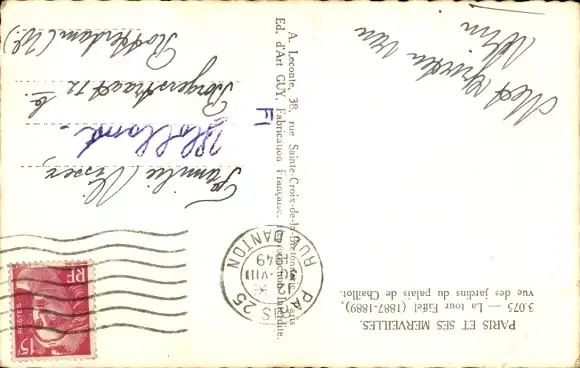 PARIS ET SES MERVEILLES.
3.075 — La tour Eiffel (1887-1889),
vue des jardins du palais de Chaillot.
Met groeten van
Wim
A. Leconte, 38, rue Sainte-Croix-de-la-Bretonnerie, Paris
Ed. d'Art GUY. Fabrication Française. Reproduction Interdite.
PARIS 25
RUE DANTON
12
VIII
1949
RF
POSTES
15F
Familie Visser
Holland
F1
Borgerstraat 72 b
Rotterdam (W.)